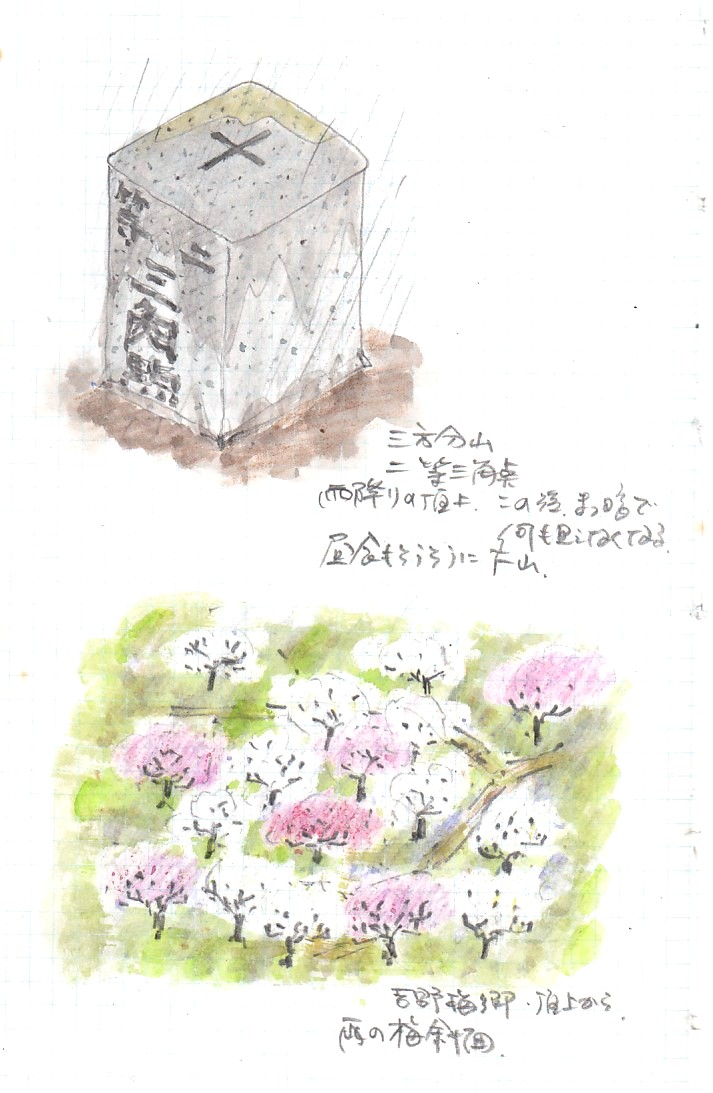 二等
三角點
三方分山
二等三角点
雨降りの頂上、この後、まっ暗で
何も見えなくなる
昼食もそうそうに下山、
吉野梅郷・頂上から、
西の梅斜面、